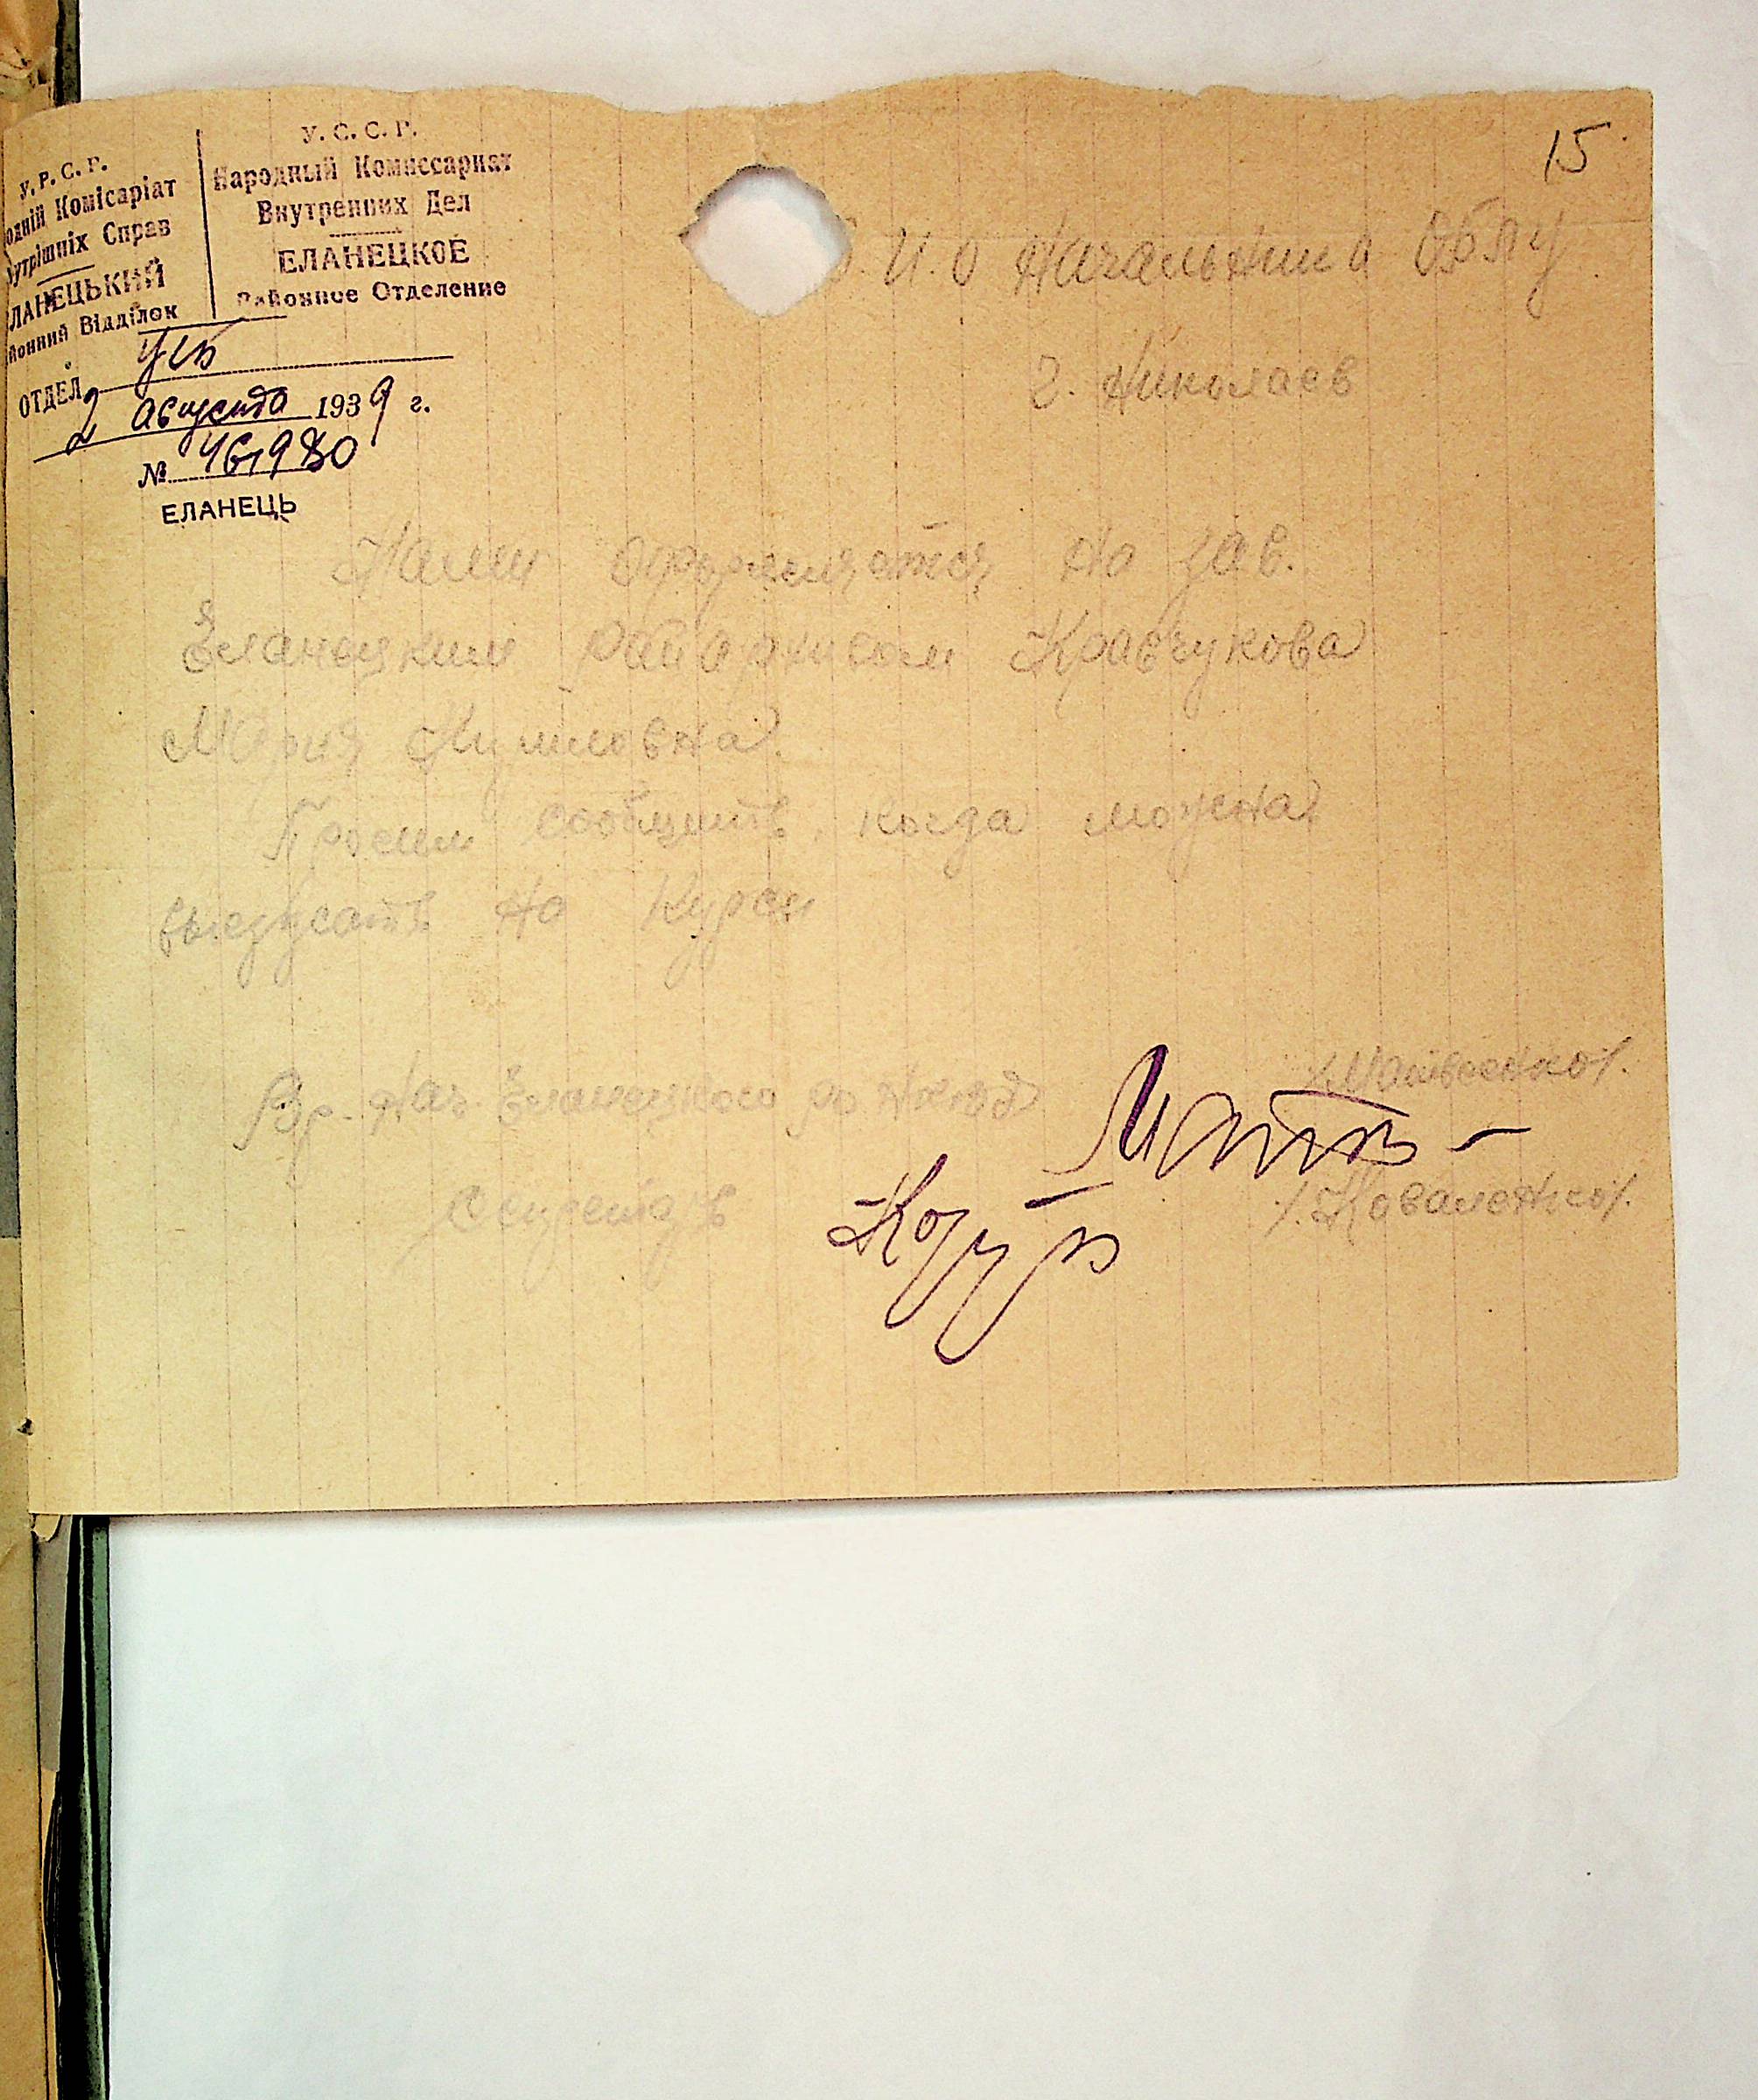 15
У.Р.С.Р.
одній Комісаріат
утрішніх Справ
ЛАНЕЦЬКИЙ
йонний Відділок
У.С.С.Р.
Народный Комиссариат
Внутренних Дел
ЕЛАНЕЦКОЕ
Районное Отделение
ОТДЕЛ
2 августа 1939 г.
№
ЕЛАНЕЦЬ
И.О Начальника
г. Николаев
Нами оформляется на зав.
Еланецким райархивом Кравчукова
Мария
Просим сообщить, когда можна
выезжать на Курсы
Вр. Нач. Еланецкого РО НКВД
/Матвеенко/.
Секретарь
/.Коваленко/.